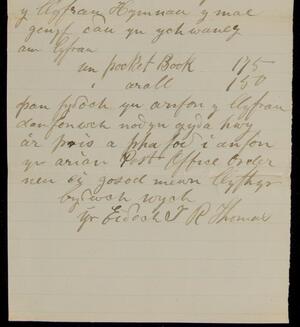 y Llyfrau Hymnau y mae
genyf eau yn ychwaneg
am lyfrau
un pocket Book 175
i arall 150
pan fydoch yn anfon y llyfrau
danfonwch nodyn gyda hwy
ar pris a pha fod i anfon
yr arian Post Office Order
neu ei gosod mewn llythyr
bydwch wych
yr Eidoch T R Thomas